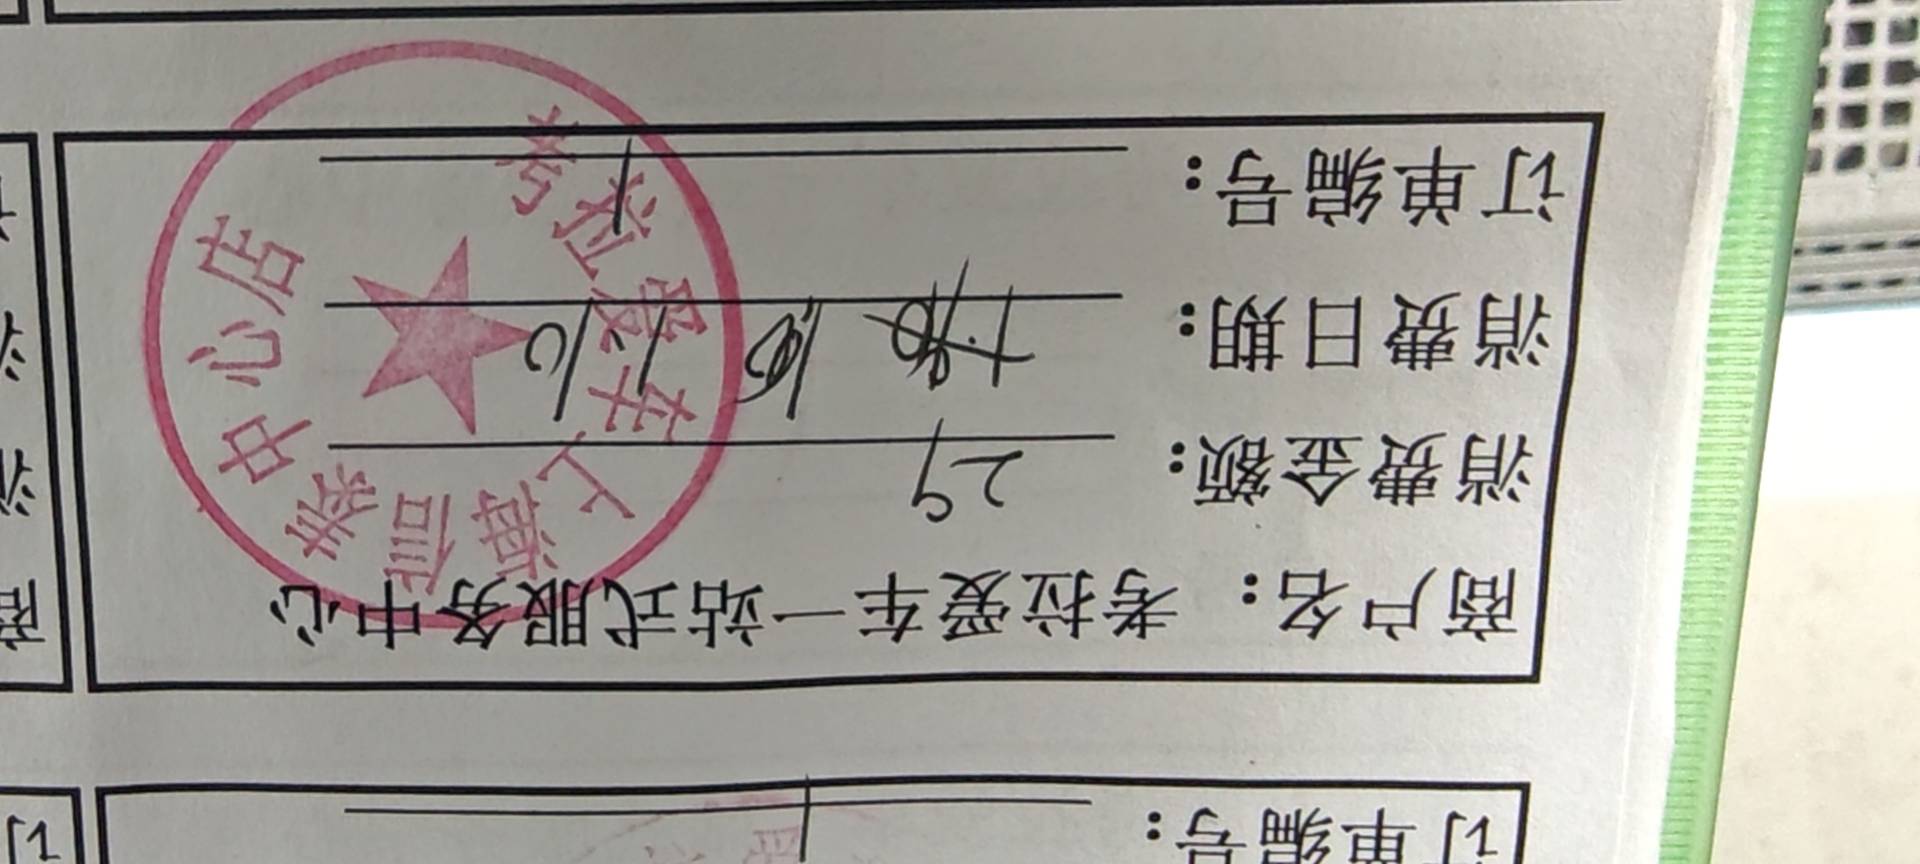 订单编号:
商户名:考拉爱车一站式服务中心
消费金额:29
消费日期:
订单编号:
考拉爱车上海信泰中心店